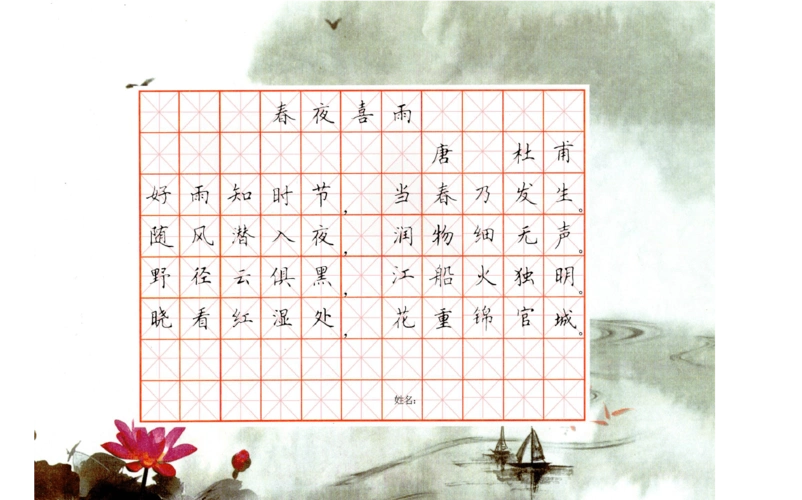 春夜喜雨
唐 杜甫
好雨知时节，当春乃发生。
随风潜入夜，润物细无声。
野径云俱黑，江船火独明。
晓看红湿处，花重锦官城。
姓名：